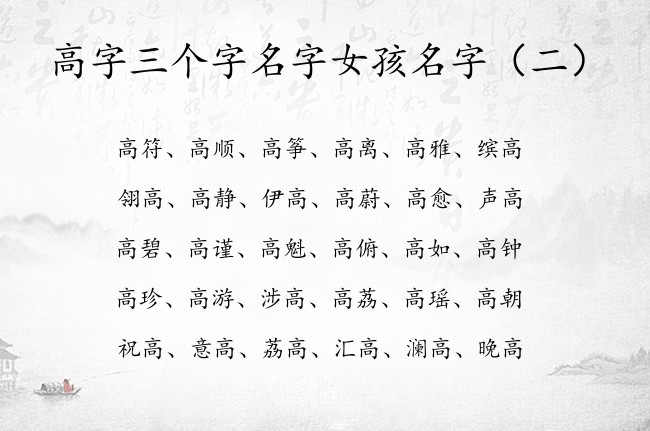 高字三个字名字女孩名字（二）
高符、高顺、高筝、高离、高雅、缤高
翎高、高静、伊高、高蔚、高愈、声高
高碧、高谨、高魁、高俯、高如、高钟
高珍、高游、涉高、高荔、高瑶、高朝
祝高、意高、荔高、汇高、澜高、晚高